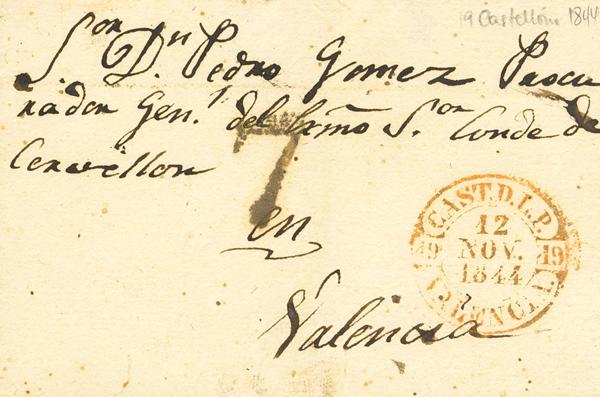 19 Castellón 1844
S.or D.n Pedro Gomez Procu
rador Gen.l del Exmo S.or Conde de
Cervellon
7
en
Valencia
CAST. D. L. P.
19 19
12
NOV.
1844
VALENCIA